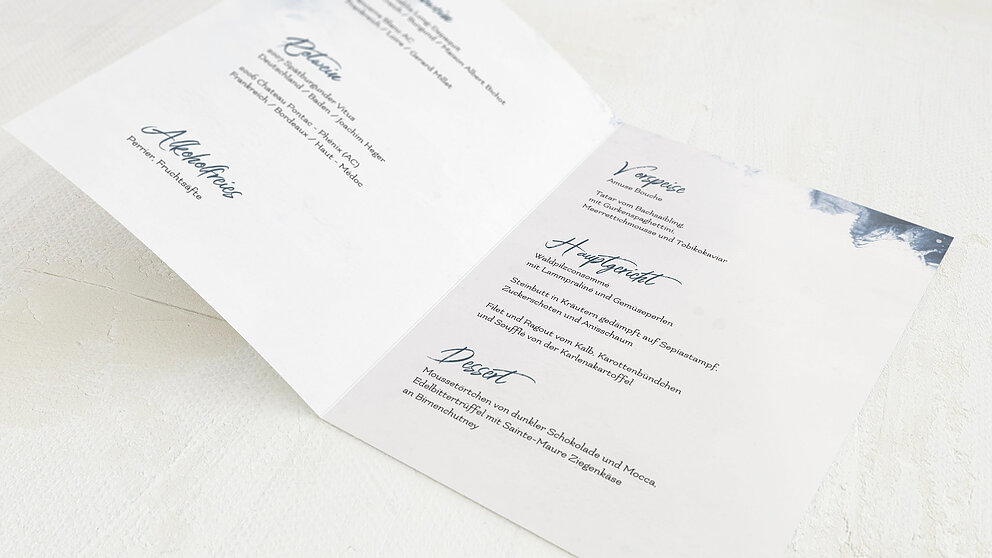 Long Depaquit
Burgund / Maison Albert Bichot
Blanc AC
Frankreich / Loire / Gerard Millet
Rotwein
2007 Spätburgunder Vitus
Deutschland / Baden / Joachim Heger
2006 Chateau Pontac - Phénix (AC)
Frankreich / Bordeaux / Haut - Medoc
Alkoholfreies
Perrier, Fruchtsäfte
Vorspeise
Amuse Bouche
Tatar vom Bachsaibling,
mit Gurkenspaghettini,
Meerrettichmousse und Tobikokaviar
Hauptgericht
Waldpilzconsommé
mit Lammpraline und Gemüseperlen
Steinbutt in Kräutern gedämpft auf Sepiastampf,
Zuckerschoten und Anisschaum
Filet und Ragout vom Kalb, Karottenbündchen
und Souffle von der Karlenakartoffel
Dessert
Moussetörtchen von dunkler Schokolade und Mocca,
Edelbittertrüffel mit Sainte-Maure Ziegenkäse
an Birnenchutney